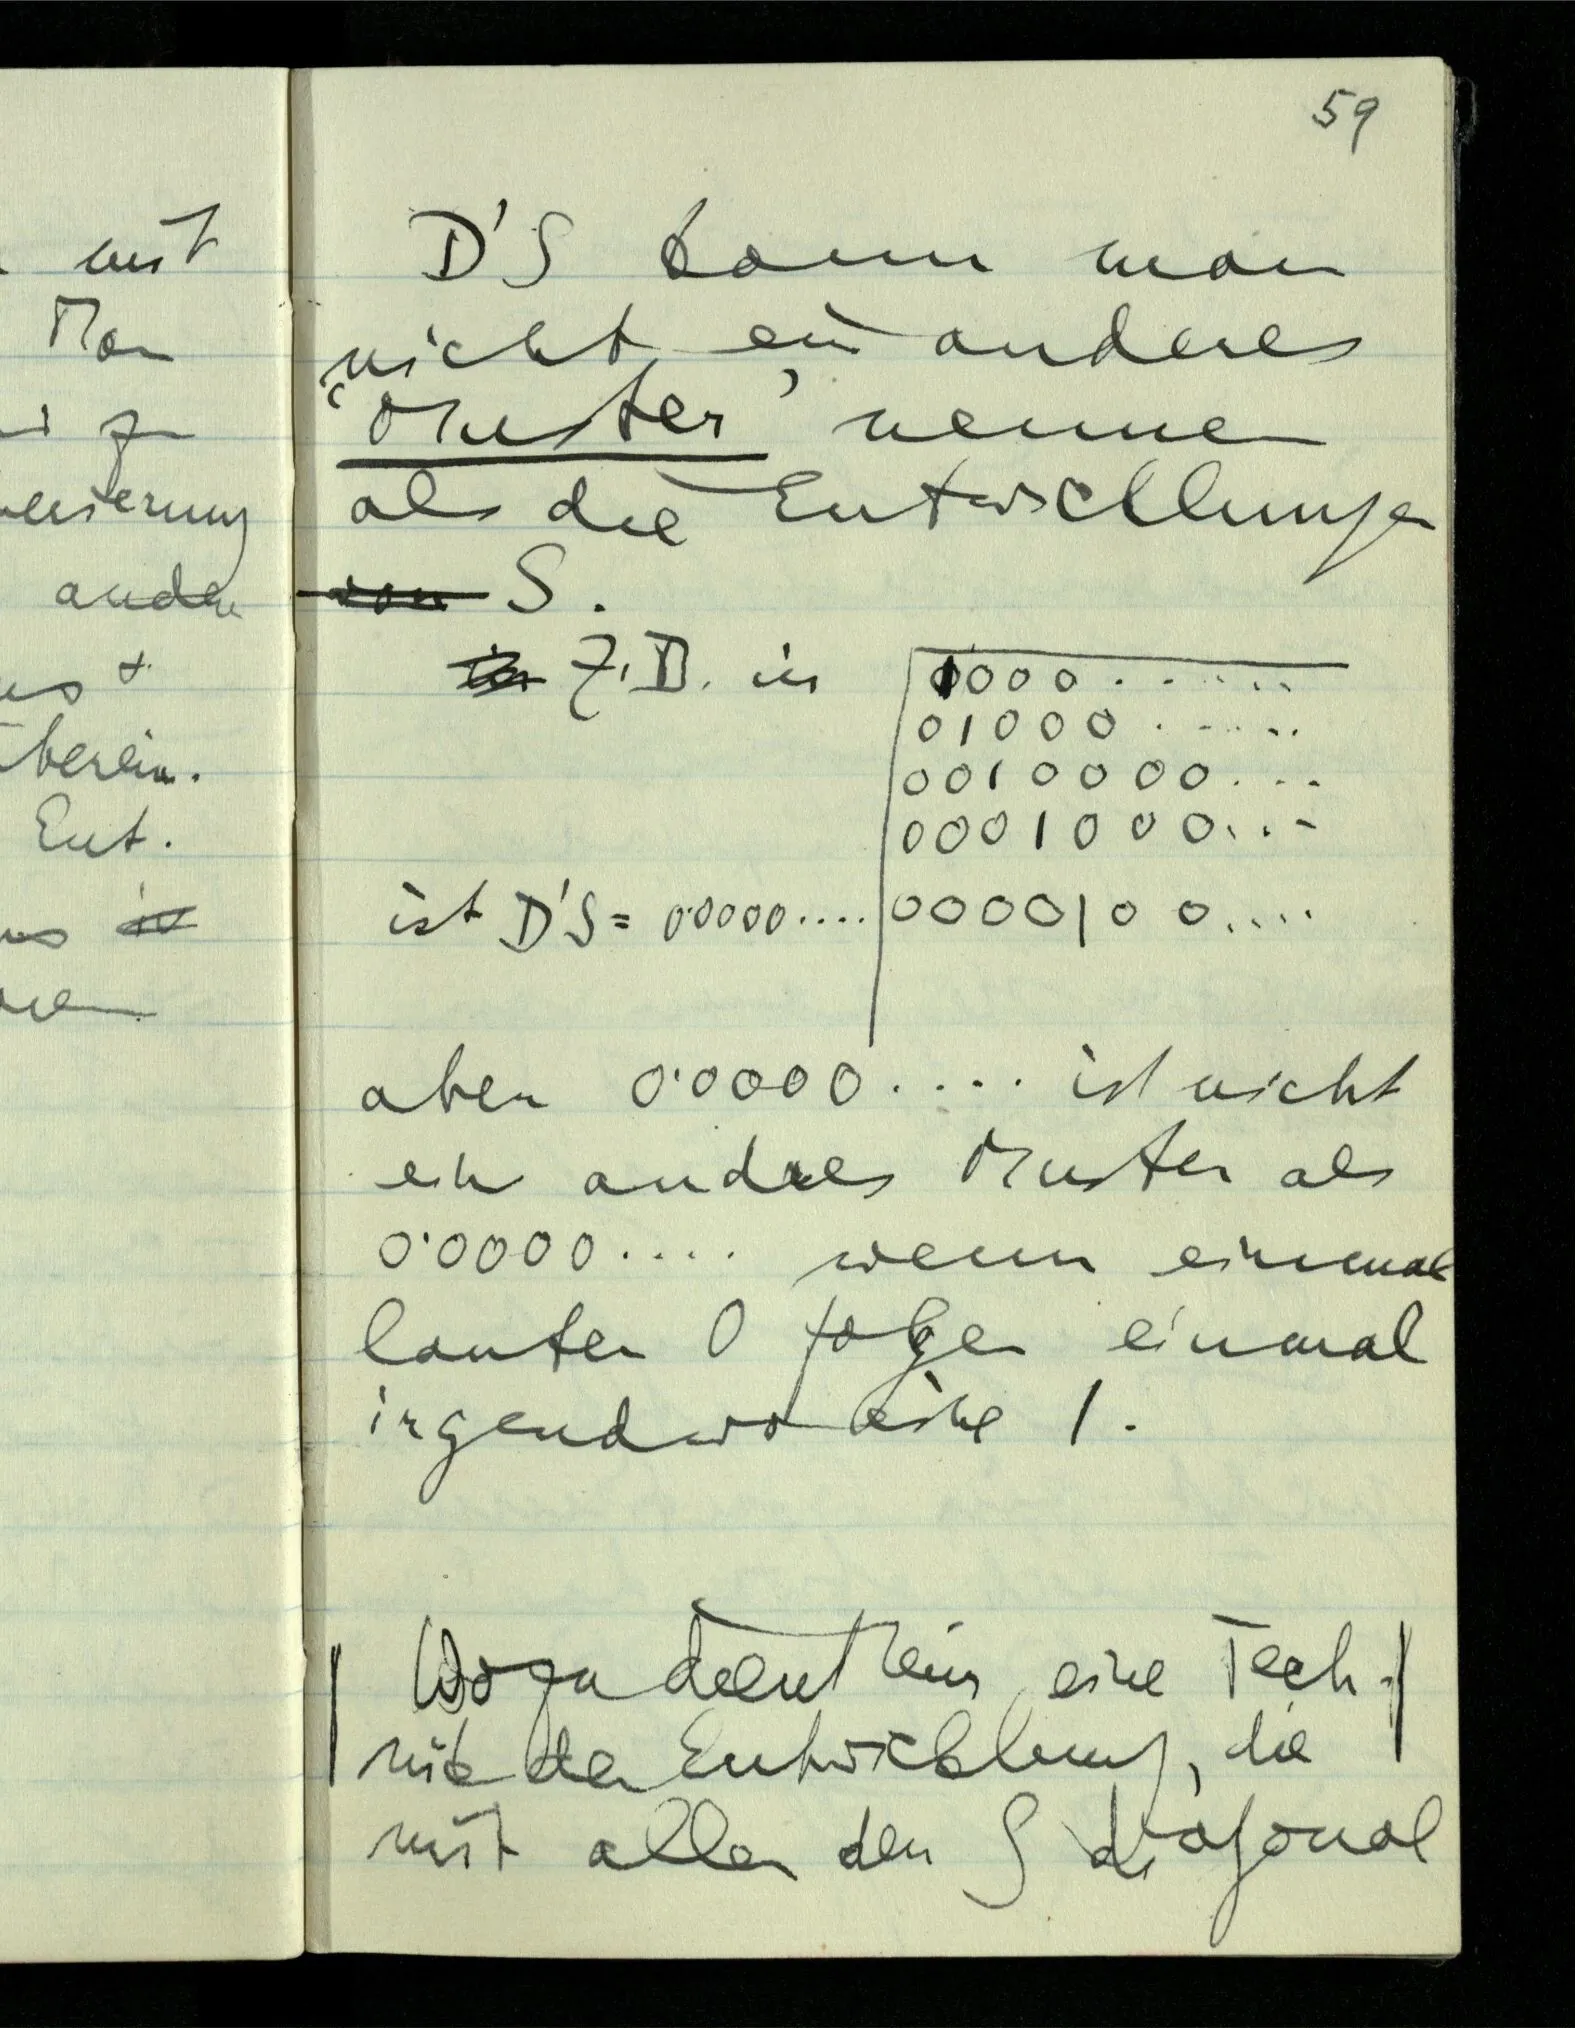 59
mit
Man
zu
ander
überein.
Ent.
D'S kann man
nicht ein anderes
‘Muster’ nennen
als die Entwicklungen
von S.
in Z.B. in
1000......
01000......
0010000...
0001000...
ist D'S = 0·0000.... 0000100....
aber 0·0000.... ist nicht
ein andres Muster als
0·0000.... wenn einmal
lauter 0 folgen einmal
irgendwo eine 1.
Wozu dient ein eine Tech-
nik der Entwicklung, die
mit allen den S diagonal